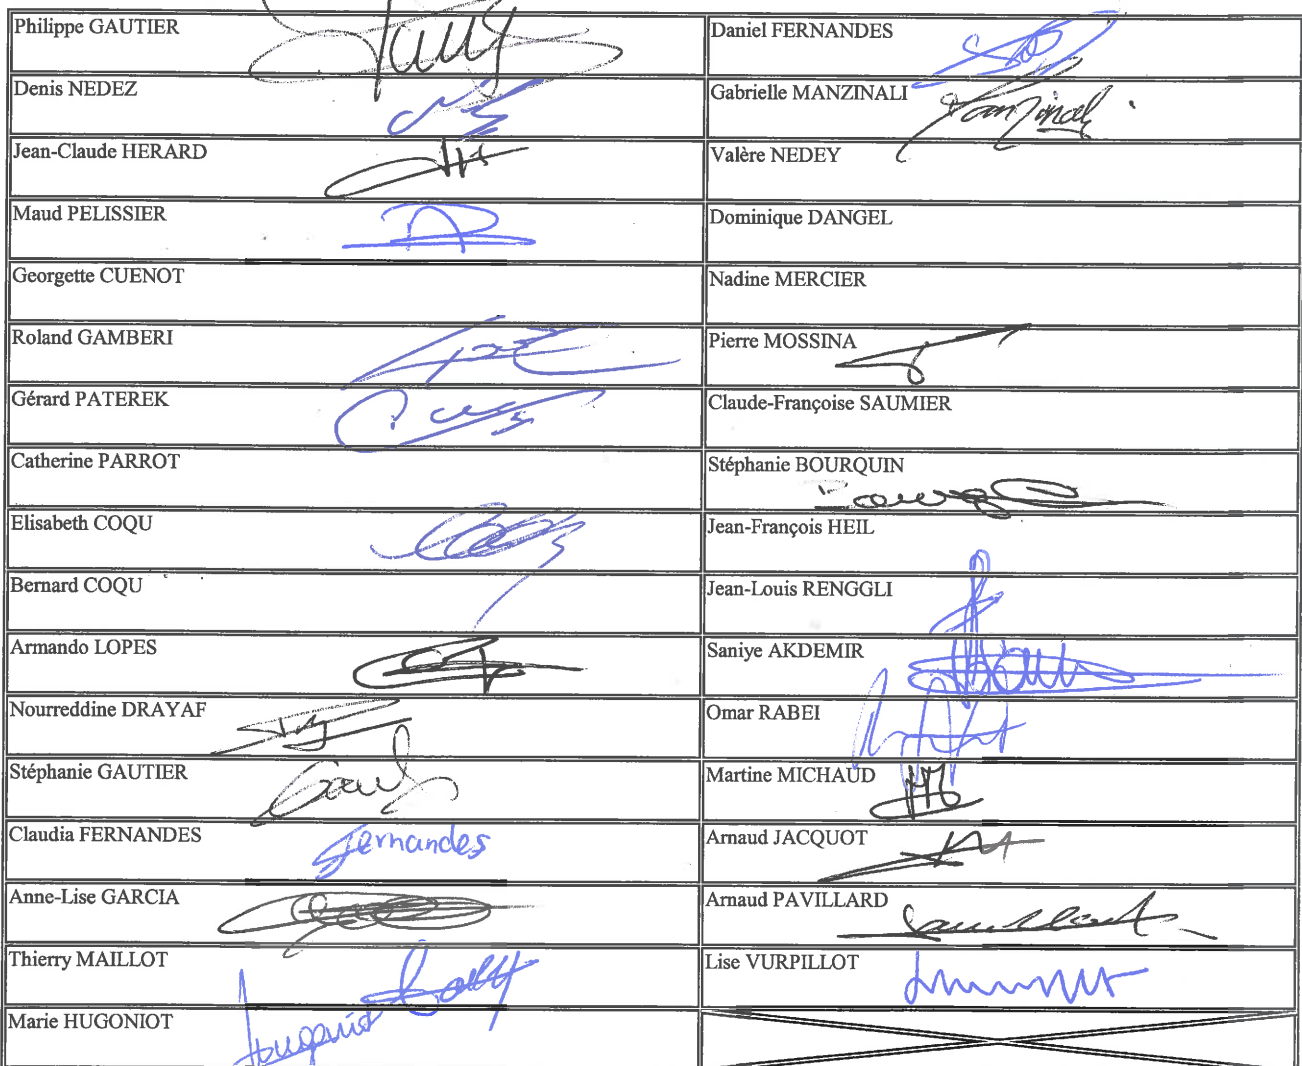 Philippe GAUTIER
Daniel FERNANDES
Denis NEDEZ
Gabrielle MANZINALI
Jean-Claude HERARD
Valère NEDEY
Maud PELISSIER
Dominique DANGEL
Georgette CUENOT
Nadine MERCIER
Roland GAMBERI
Pierre MOSSINA
Gérard PATEREK
Claude-Françoise SAUMIER
Catherine PARROT
Stéphanie BOURQUIN
Elisabeth COQU
Jean-François HEIL
Bernard COQU
Jean-Louis RENGGLI
Armando LOPES
Saniye AKDEMIR
Nourreddine DRAYAF
Omar RABEI
Stéphanie GAUTIER
Martine MICHAUD
Claudia FERNANDES
Fernandes
Arnaud JACQUOT
Anne-Lise GARCIA
Arnaud PAVILLARD
Thierry MAILLOT
Lise VURPILLOT
Marie HUGONIOT